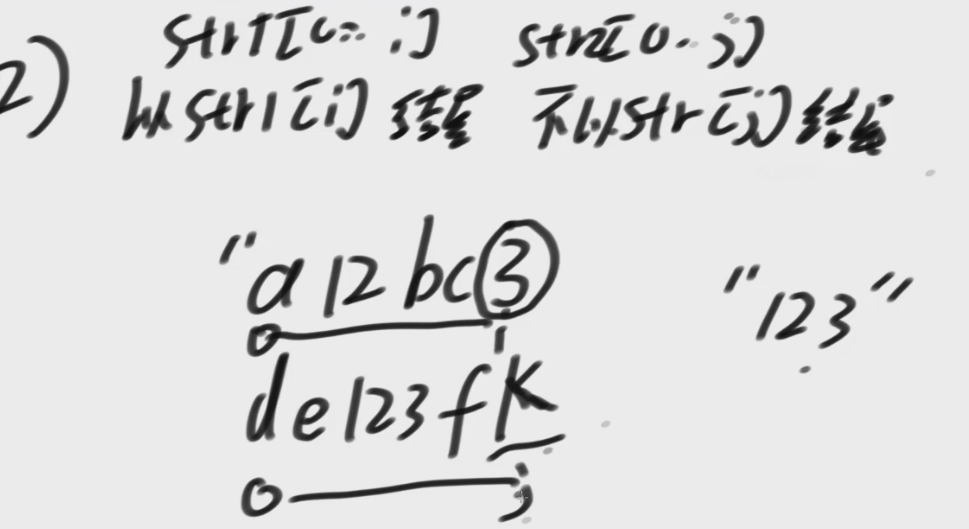 2) str1[0...i] str2[0...j]
以str1[i]结尾 不以str[j]结尾
"a12bc3
"123"
0 i
de123fk
0 j